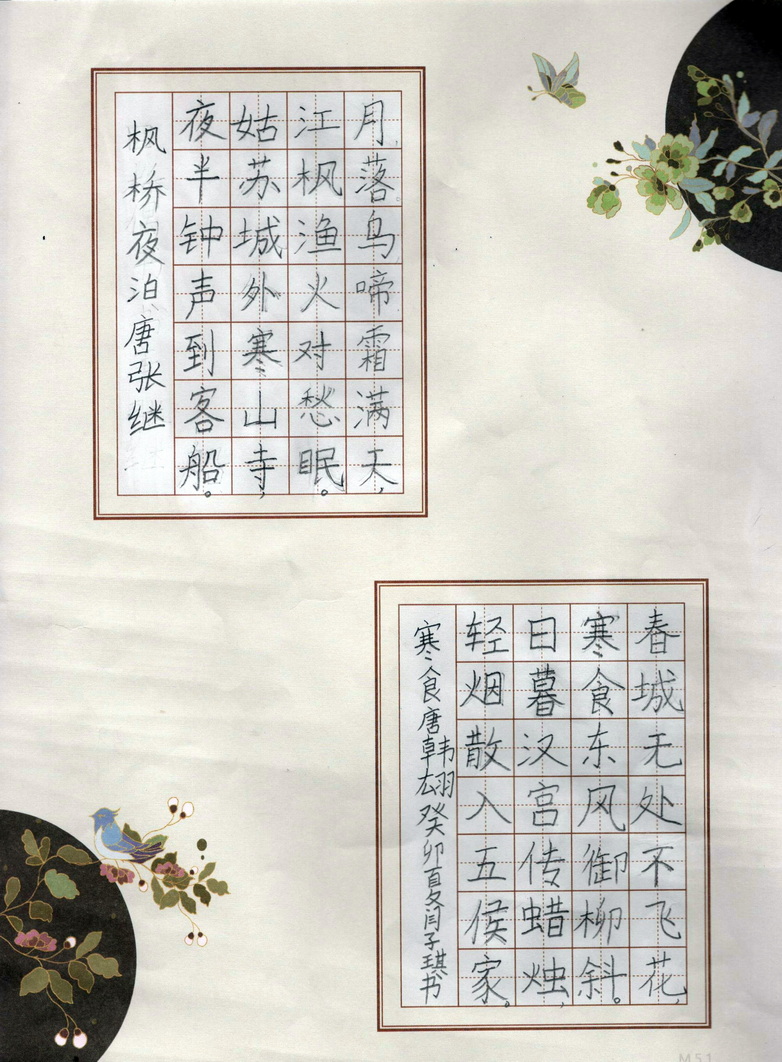 月落乌啼霜满天,
江枫渔火对愁眠。
姑苏城外寒山寺,
夜半钟声到客船。
枫桥夜泊 唐 张继
春城无处不飞花,
寒食东风御柳斜。
日暮汉宫传蜡烛,
轻烟散入五侯家。
寒食 唐 韩翃 癸卯夏 闫子琪书
M51